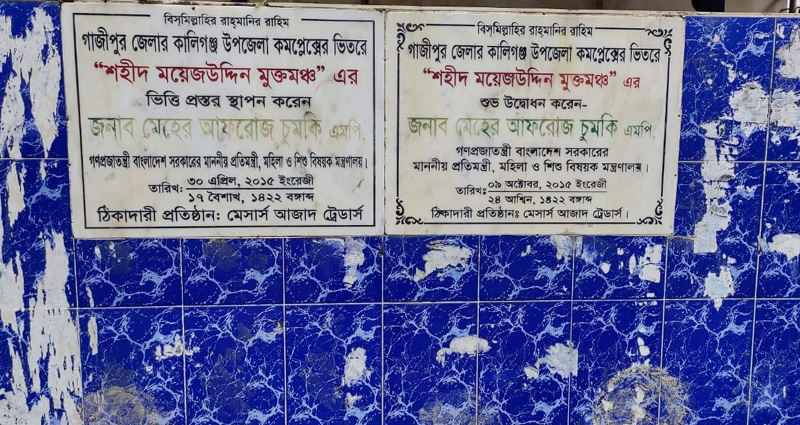 বিস্‌মিল্লাহির রাহ্‌মানির রাহিম
গাজীপুর জেলার কালিগঞ্জ উপজেলা কমপ্লেক্সের ভিতরে
“শহীদ ময়েজউদ্দিন মুক্তমঞ্চ” এর
ভিত্তি প্রস্তর স্থাপন করেন
জনাব মেহের আফরোজ চুমকি এমপি,
গণপ্রজাতন্ত্রী বাংলাদেশ সরকারের মাননীয় প্রতিমন্ত্রী, মহিলা ও শিশু বিষয়ক মন্ত্রণালয়।
তারিখ: ৩০ এপ্রিল, ২০১৫ ইংরেজী
১৭ বৈশাখ, ১৪২২ বঙ্গাব্দ
ঠিকাদারী প্রতিষ্ঠান: মেসার্স আজাদ ট্রেডার্স
বিস্‌মিল্লাহির রাহ্‌মানির রাহিম
গাজীপুর জেলার কালিগঞ্জ উপজেলা কমপ্লেক্সের ভিতরে
“শহীদ ময়েজউদ্দিন মুক্তমঞ্চ” এর
শুভ উদ্বোধন করেন-
জনাব মেহের আফরোজ চুমকি এমপি,
গণপ্রজাতন্ত্রী বাংলাদেশ সরকারের
মাননীয় প্রতিমন্ত্রী, মহিলা ও শিশু বিষয়ক মন্ত্রণালয়।
তারিখঃ ০৯ অক্টোবর, ২০১৫ ইংরেজী
২৪ আশ্বিন, ১৪২২ বঙ্গাব্দ
ঠিকাদারী প্রতিষ্ঠানঃ মেসার্স আজাদ ট্রেডার্স।